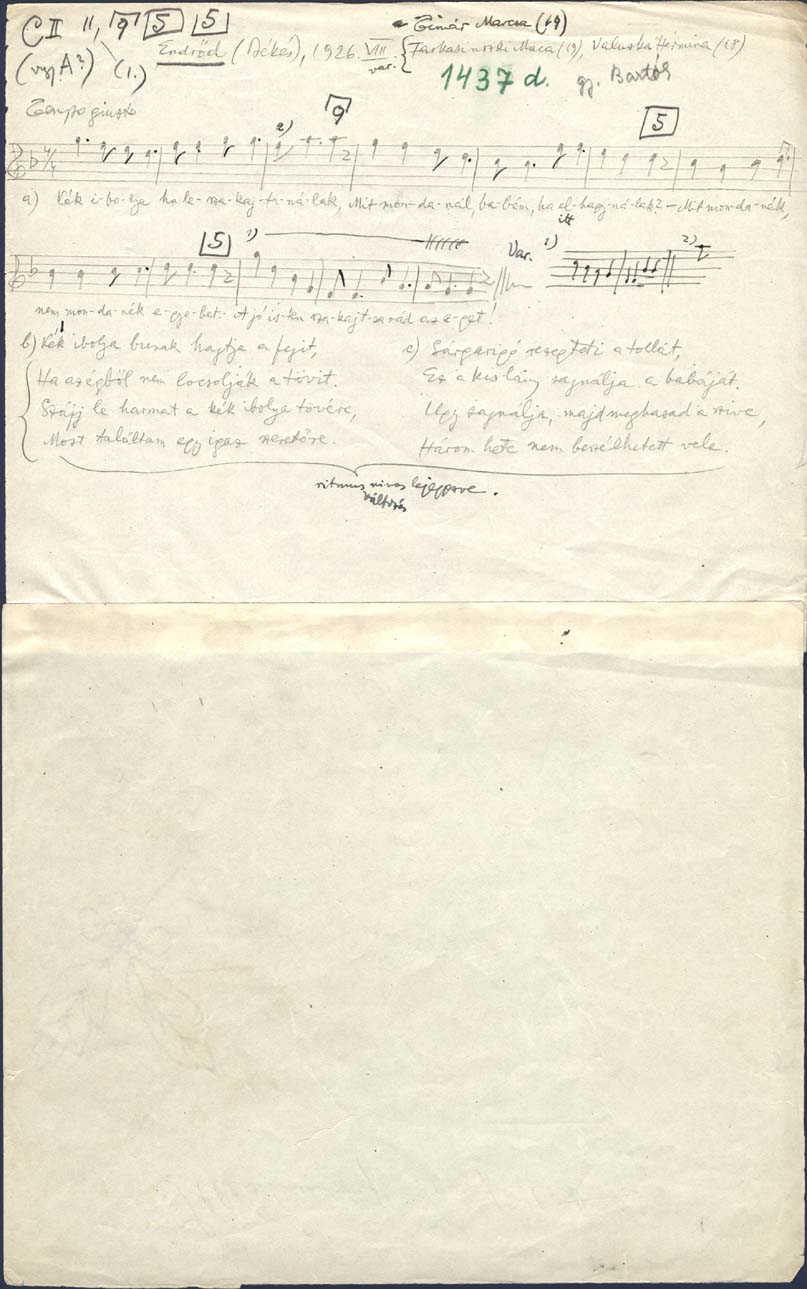 C II 11, 9 5 5
Timár Marcsa (19)
(vagy A?) (1.)
Endrőd (Békés), 1926. VIII
var. Farkasinszki Maca (19), Valuska Hermina (18)
1437 d. gy. Bartók
Tempo giusto
9
2)
5
a) Kék i-bo-lya ha le-sza-kaj-ta-ná-lak, Mit mon-da-nál, ba-bám, ha el-hagy-ná-lak? – Mit mon-da-nék,
itt
5
1)
Var. 1) 2)
nem mon-da-nék e-gye-bet: A jó is-ten sza-kajt-sa rád az e-get!
b) Kék ibolya bunak hajtja a fejit,
Ha az égből nem locsolják a tövit.
Szájj le harmat a kék ibolya tövére,
Most találtam egy igaz szeretőre.
c) Sárgarigó rezegteti a tollát,
Ez a kis lány sajnálja a babáját.
Ugy sajnálja, majd meghasad a szive,
Három hete nem beszélhetett vele.
ritmus nincs lejegyezve.
változás